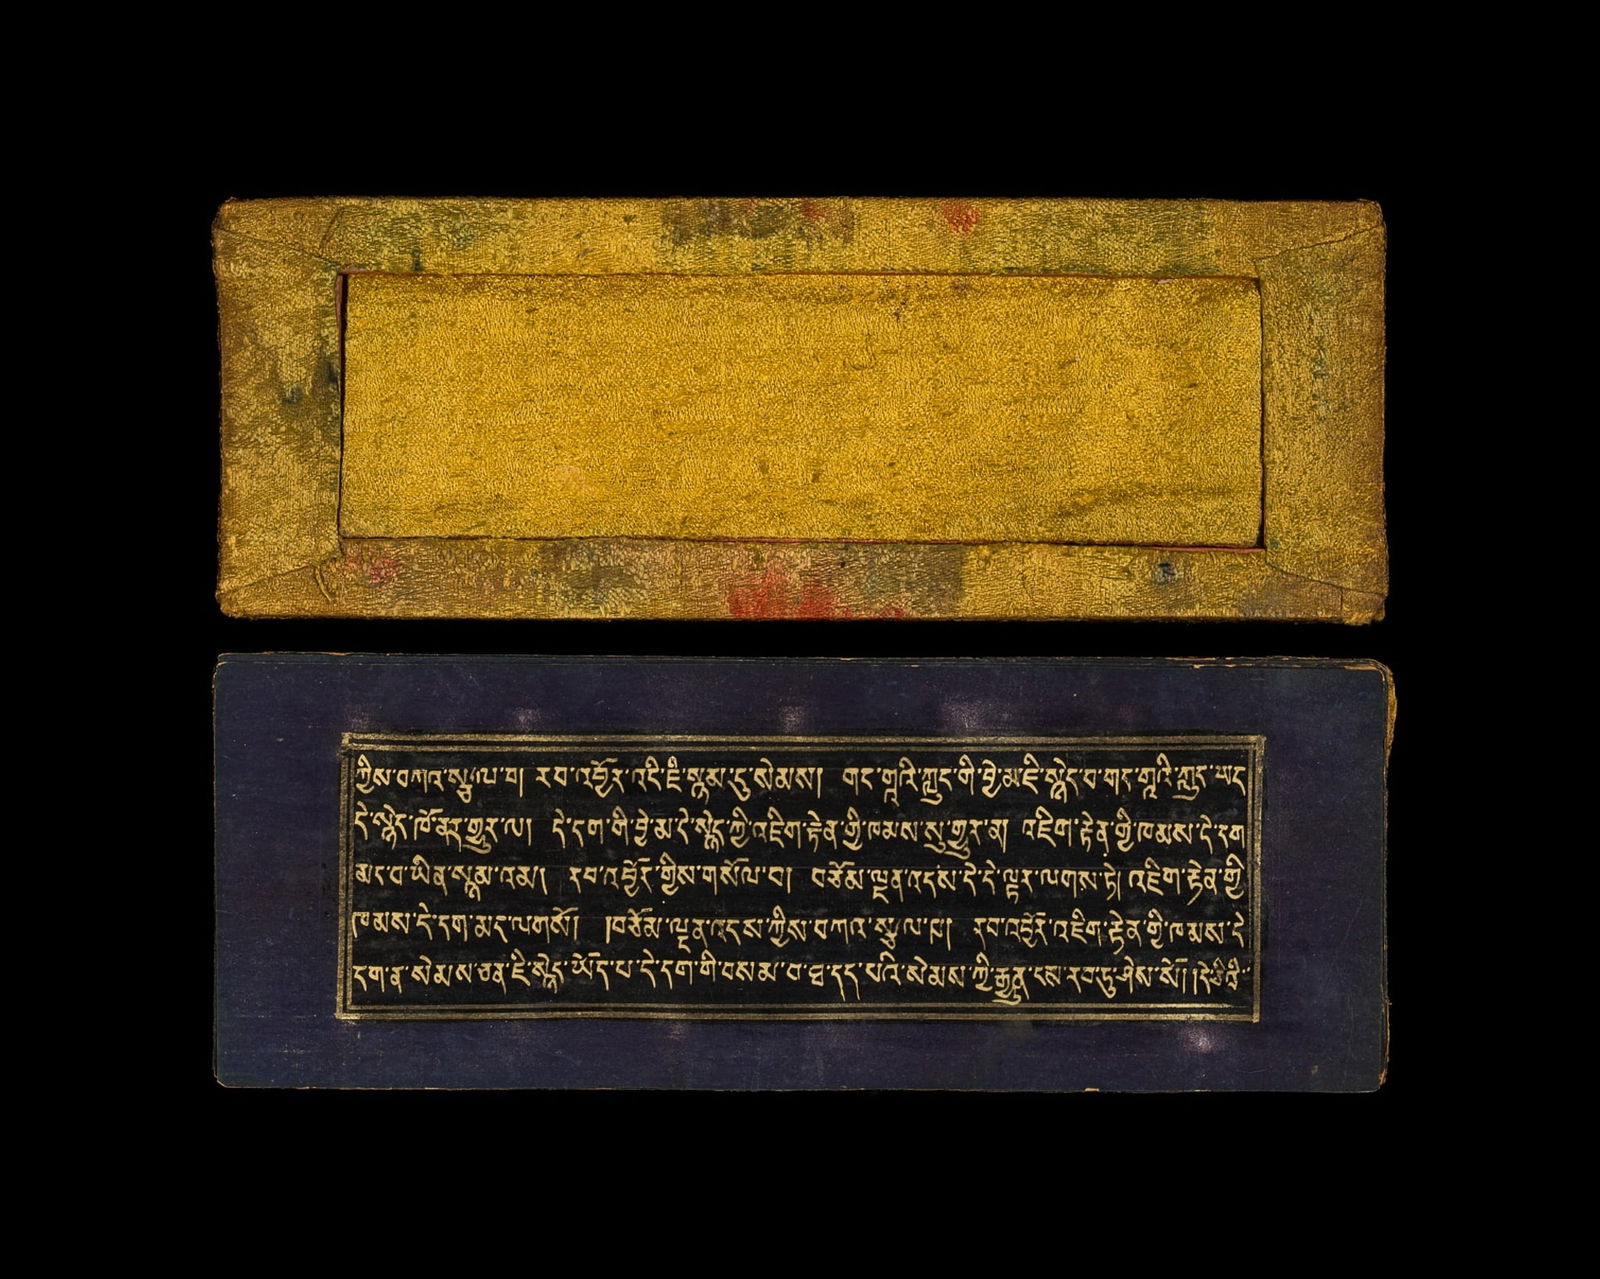 ཀྱིས་བཀའ་སྩལ་པ། རབ་འབྱོར་འདི་ཇི་སྙམ་དུ་སེམས། གང་གཱའི་ཀླུང་གི་བྱེ་མ་ཇི་སྙེད་པ་གང་གཱའི་ཀླུང་ཡང་
དེ་སྙེད་ཁོ་ནར་གྱུར་ལ། དེ་དག་གི་བྱེ་མ་དེ་སྙེད་ཀྱི་འཇིག་རྟེན་གྱི་ཁམས་སུ་གྱུར་ན། འཇིག་རྟེན་གྱི་ཁམས་དེ་དག
མང་བ་ཡིན་སྙམ་འམ། རབ་འབྱོར་གྱིས་གསོལ་པ། བཅོམ་ལྡན་འདས་དེ་དེ་ལྟར་ལགས་ཏེ། འཇིག་རྟེན་གྱི
ཁམས་དེ་དག་མང་ལགསོ། །བཅོམ་ལྡན་འདས་ཀྱིས་བཀའ་སྩལ་པ། རབ་འབྱོར་འཇིག་རྟེན་གྱི་ཁམས་དེ
དག་ན་སེམས་ཅན་ཇི་སྙེད་ཡོད་པ་དེ་དག་གི་བསམ་པ་ཐ་དད་པའི་སེམས་ཀྱི་རྒྱུན་ངས་རབ་ཏུ་ཤེས་སོ། །དེ་ཅིའི